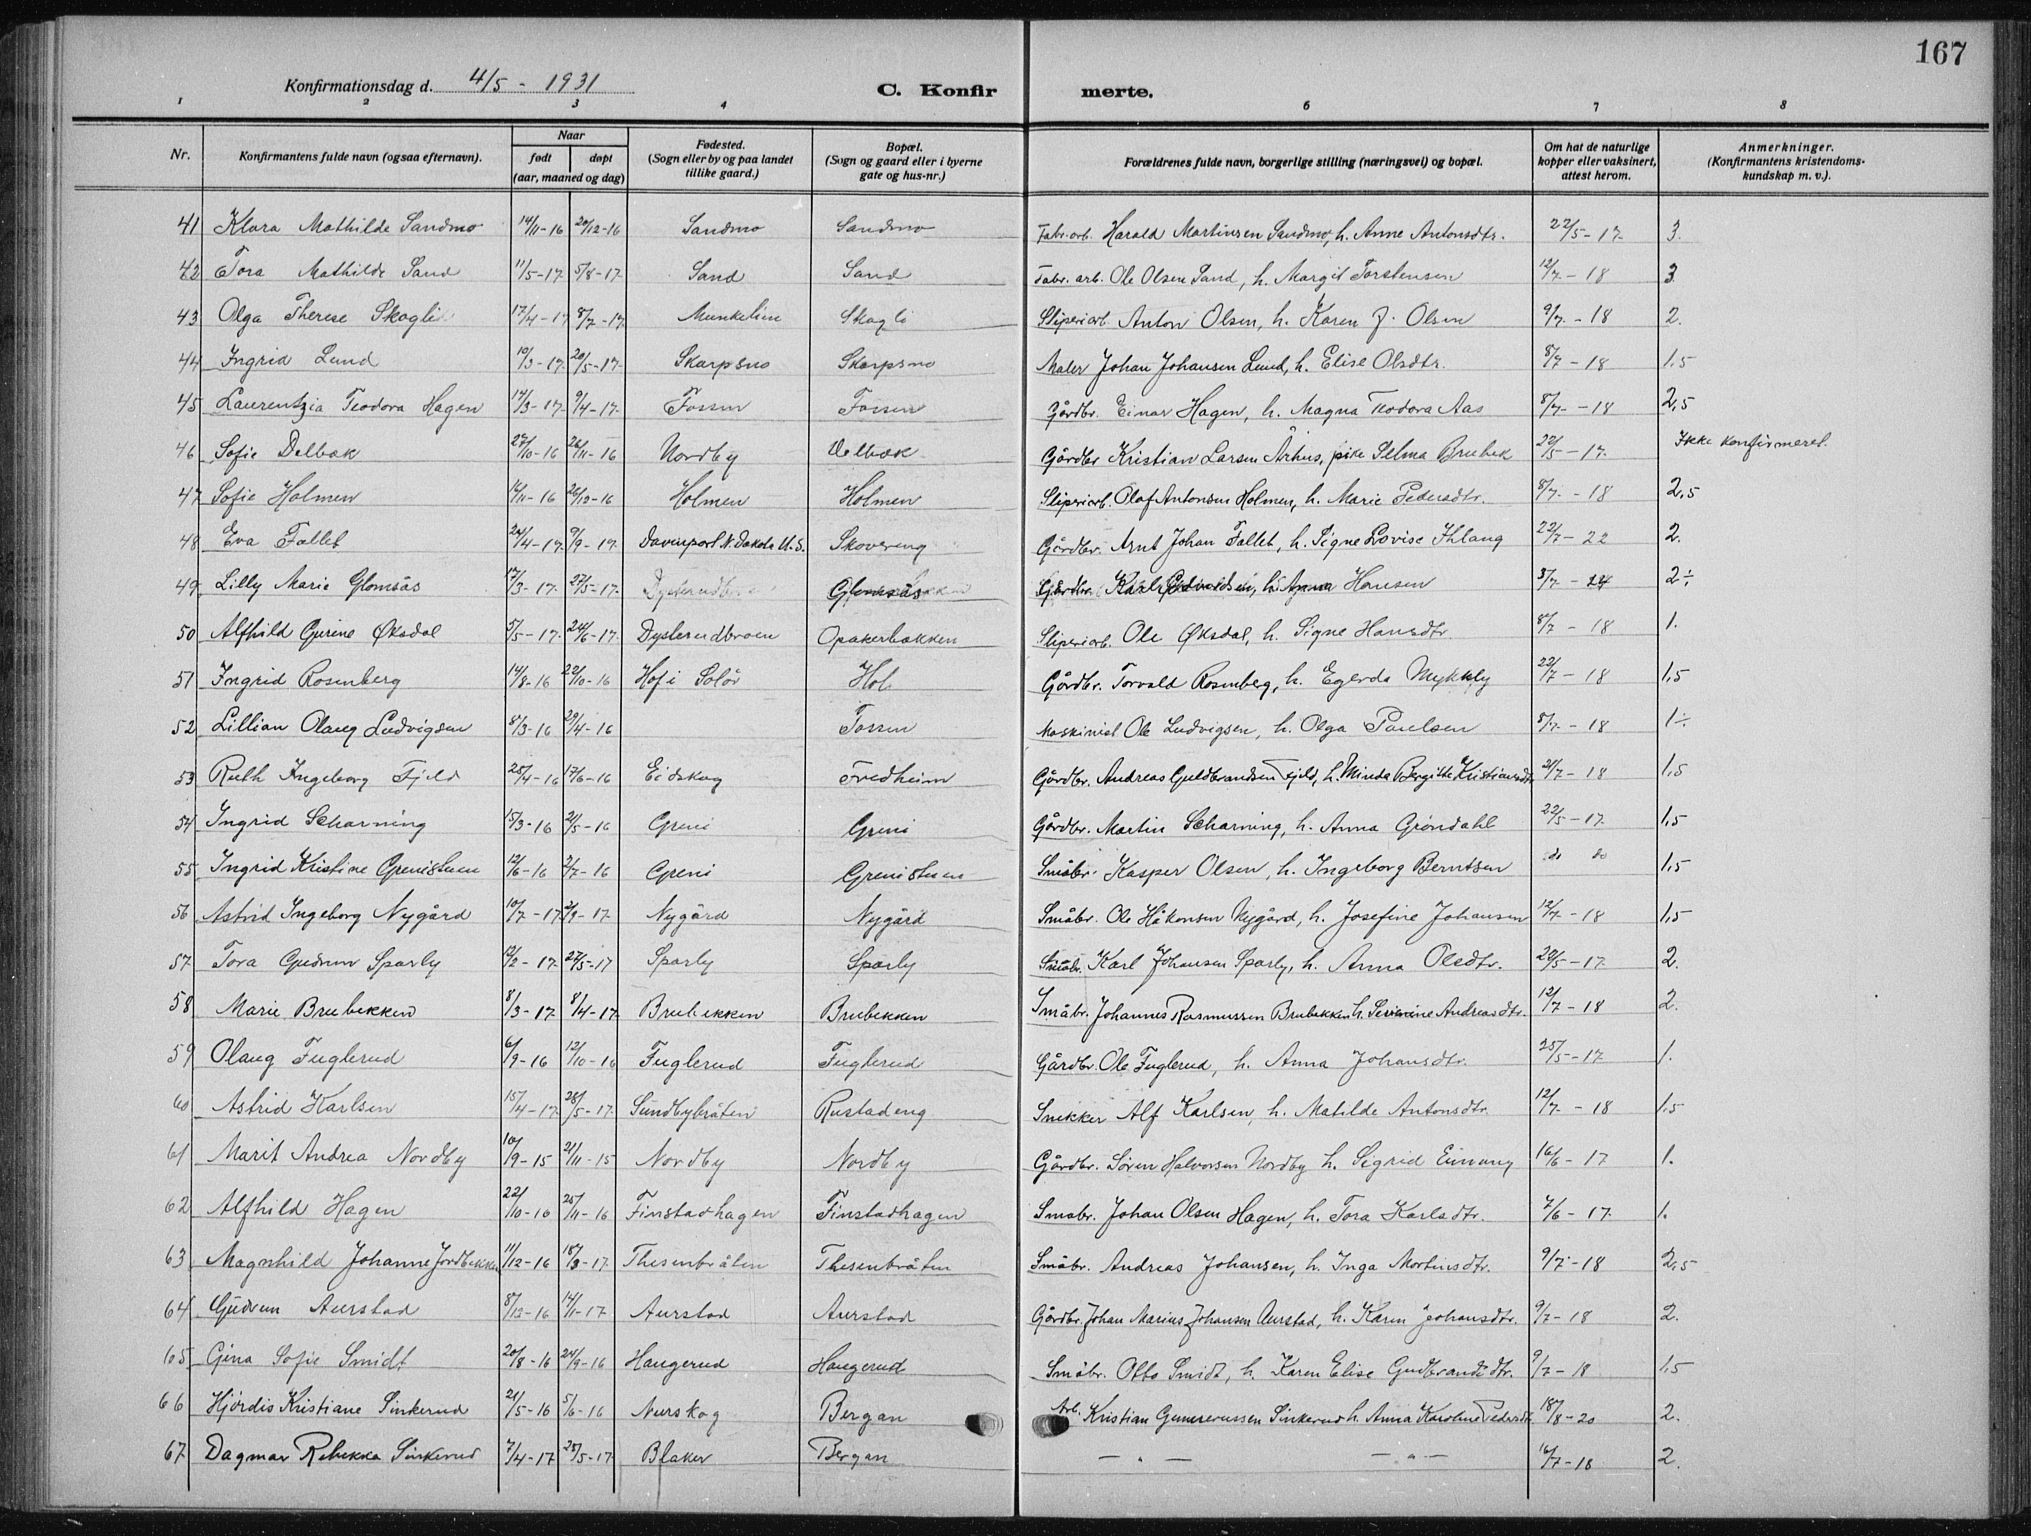 167
Konfirmationsdag d. 4/5 - 1931
C. Konfirmerte.
1 2 3 4 6 7 8
Nr. Konfirmantens fulde navn (ogsaa efternavn). Naar født døpt (aar, maaned og dag) Fødested. (Sogn eller by og paa landet tillike gaard.) Bopæl. (Sogn og gaard eller i byerne gate og hus-nr.) Forældrenes fulde navn, borgerlige stilling (næringsvei) og bopæl. Om hat de naturlige kopper eller vaksinert, attest herom. Anmerkninger. (Konfirmantens kristendoms-kundskap m. v.).
41 Klara Mathilde Sandmo 14/11-16 20/12-16 Sandmo Sandmo Fabr. arb. Harald Martinsen Sandmo, h. Anne Antonsdtr. 22/5-17 3.
42 Tora Mathilde Sand 11/5-17 5/8-17 Sand Sand Fabr. arb. Ole Olsen Sand, h. Margit Torstensen 12/7-18 3
43 Olga Therese Skogli 17/4-17 8/7-17 Munkelien Skogli Sliperiarb. Anton Olsen, h. Karen J. Olsen 9/7-18 2.
44 Ingrid Lund 10/3-17 20/5-17 Skarpsno Skarpsno Maler Johan Johansen Lund, h. Elise Olsdtr. 8/7-18 1,5
45 Laurentzia Teodora Hagen 14/3-17 9/4-17 Fossen Fossen Gårdbr. Einar Hagen, h. Magna Teodora Aas 8/7-18 2,5
46 Sofie Delbak 27/10-16 26/11-16 Nordby Delbak Gårdbr Kristian Larsen Århus, pike Selma Brubek 22/5-17 Ikke konfirmeret.
47 Sofie Holmen 16/11-16 26/12-16 Holmen Holmen Sliperiarb. Olaf Antonsen Holmen, h. Marie Pedersdtr. 8/7-18 2,5
48 Eva Fallet 24/4-17 9/9-17 Davenport N. Dakota U.S. Skovereng Gårdbr. Arnt Johan Fallet, h. Signe Lovise Ihlang 22/7-22 2.
49 Lilly Marie Glomsås 17/3-17 27/5-17 Glomsås Gårdbr. Karl h. Anna Hansen 8/7- 2÷
50 Alfhild Gurine Øksdal 5/5-17 24/6-17 Dysterudbroen Opakerbakken Sliperiarb. Ole Øksdal, h. Signe Hansdtr. 8/7-18 1.
51 Ingrid Rosenberg 14/8-16 22/10-16 Hof i Solør Hol Gårdbr. Torvald Rosenberg, h. Egerda Mykkly 22/7-18 1,5
52 Lillian Olaug Ludvigsen 8/3-16 29/4-16 Fossen Maskinist Ole Ludvigsen, h. Olga Paulsen 8/7-18 1÷
53 Ruth Ingeborg Fjeld 25/4-16 17/6-16 Eidskog Fredheim Gårdbr. Andreas Guldbrandsen Fjeld, h. Minda Bergithe Kristiansdtr 21/7-18 1,5
54 Ingrid Scharning 15/3-16 21/5-16 Greni Greni Gårdbr. Martin Scharning, h. Anna Grøndahl 22/5-17 1,5
55 Ingrid Kristine Grenistuen 12/6-16 2/7-16 Greni Grenistuen Småbr. Kasper Olsen, h. Ingeborg Berntsen do do 1,5
56 Astrid Ingeborg Nygård 10/7-17 2/9-17 Nygård Nygård Småbr. Ole Håkonsen Nygård, h. Josefine Johansen 12/7-18 1,5
57 Tora Gudrun Sparby 12/2-17 27/5-17 Sparby Sparby Småbr. Karl Johansen Sparby, h. Anna Olsdtr. 20/5-17 2.
58 Marie Brubekken 8/3-17 8/4-17 Brubekken Brubekken Småbr. Johannes Rasmussen Brubekken h. Severine Andreasdtr. 12/7-18 2.
59 Olaug Fuglerud 6/9-16 12/10-16 Fuglerud Fuglerud Gårdbr. Ole Fuglerud, h. Anna Johansdtr. 25/5-17 1.
60 Astrid Karlsen 15/4-17 28/5-17 Sundbybråten Rustadeng Snikker Alf Karlsen, h. Matilde Antonsdtr. 12/7-18 1.5
61 Marit Andrea Nordby 10/9-15 21/11-15 Nordby Nordby Gårdbr. Søren Halvorsen Nordby h. Sigrid Eimung 16/6-17 1.
62 Alfhild Hagen 22/10-16 25/11-16 Finstadhagen Finstadhagen Småbr. Johan Olsen Hagen, h. Tora Karlsdtr. 7/6-17 1.
63 Magnhild Johanne Jordbekken 11/12-16 18/3-17 Thesenbråten Thesenbråten Småbr. Andreas Johansen, h. Inga Mortinsdtr. 9/7-18 2,5
64 Gudrun Aurstad 8/12-16 14/11-17 Aurstad Aurstad Gårdbr. Johan Marius Johansen Aurstad, h. Karen Johansdtr. 9/7-18 2.
65 Gina Sofie Smidt 20/8-16 24/9-16 Haugerud Haugerud Småbr. Otto Smidt, h. Karen Elise Gudbrandsdtr. 9/7-18 1,5
66 Hjørdis Kristiane Sinkerud 21/5-16 5/6-16 Aurskog Bergan Arb. Kristian Gunnerussen Sinkerud h. Anna Karoline Pedersdtr 18/8-20 2.
67 Dagmar Rebekka Sinkerud 7/4-17 25/5-17 Blaker Bergan — " — — " — 16/7-18 2.